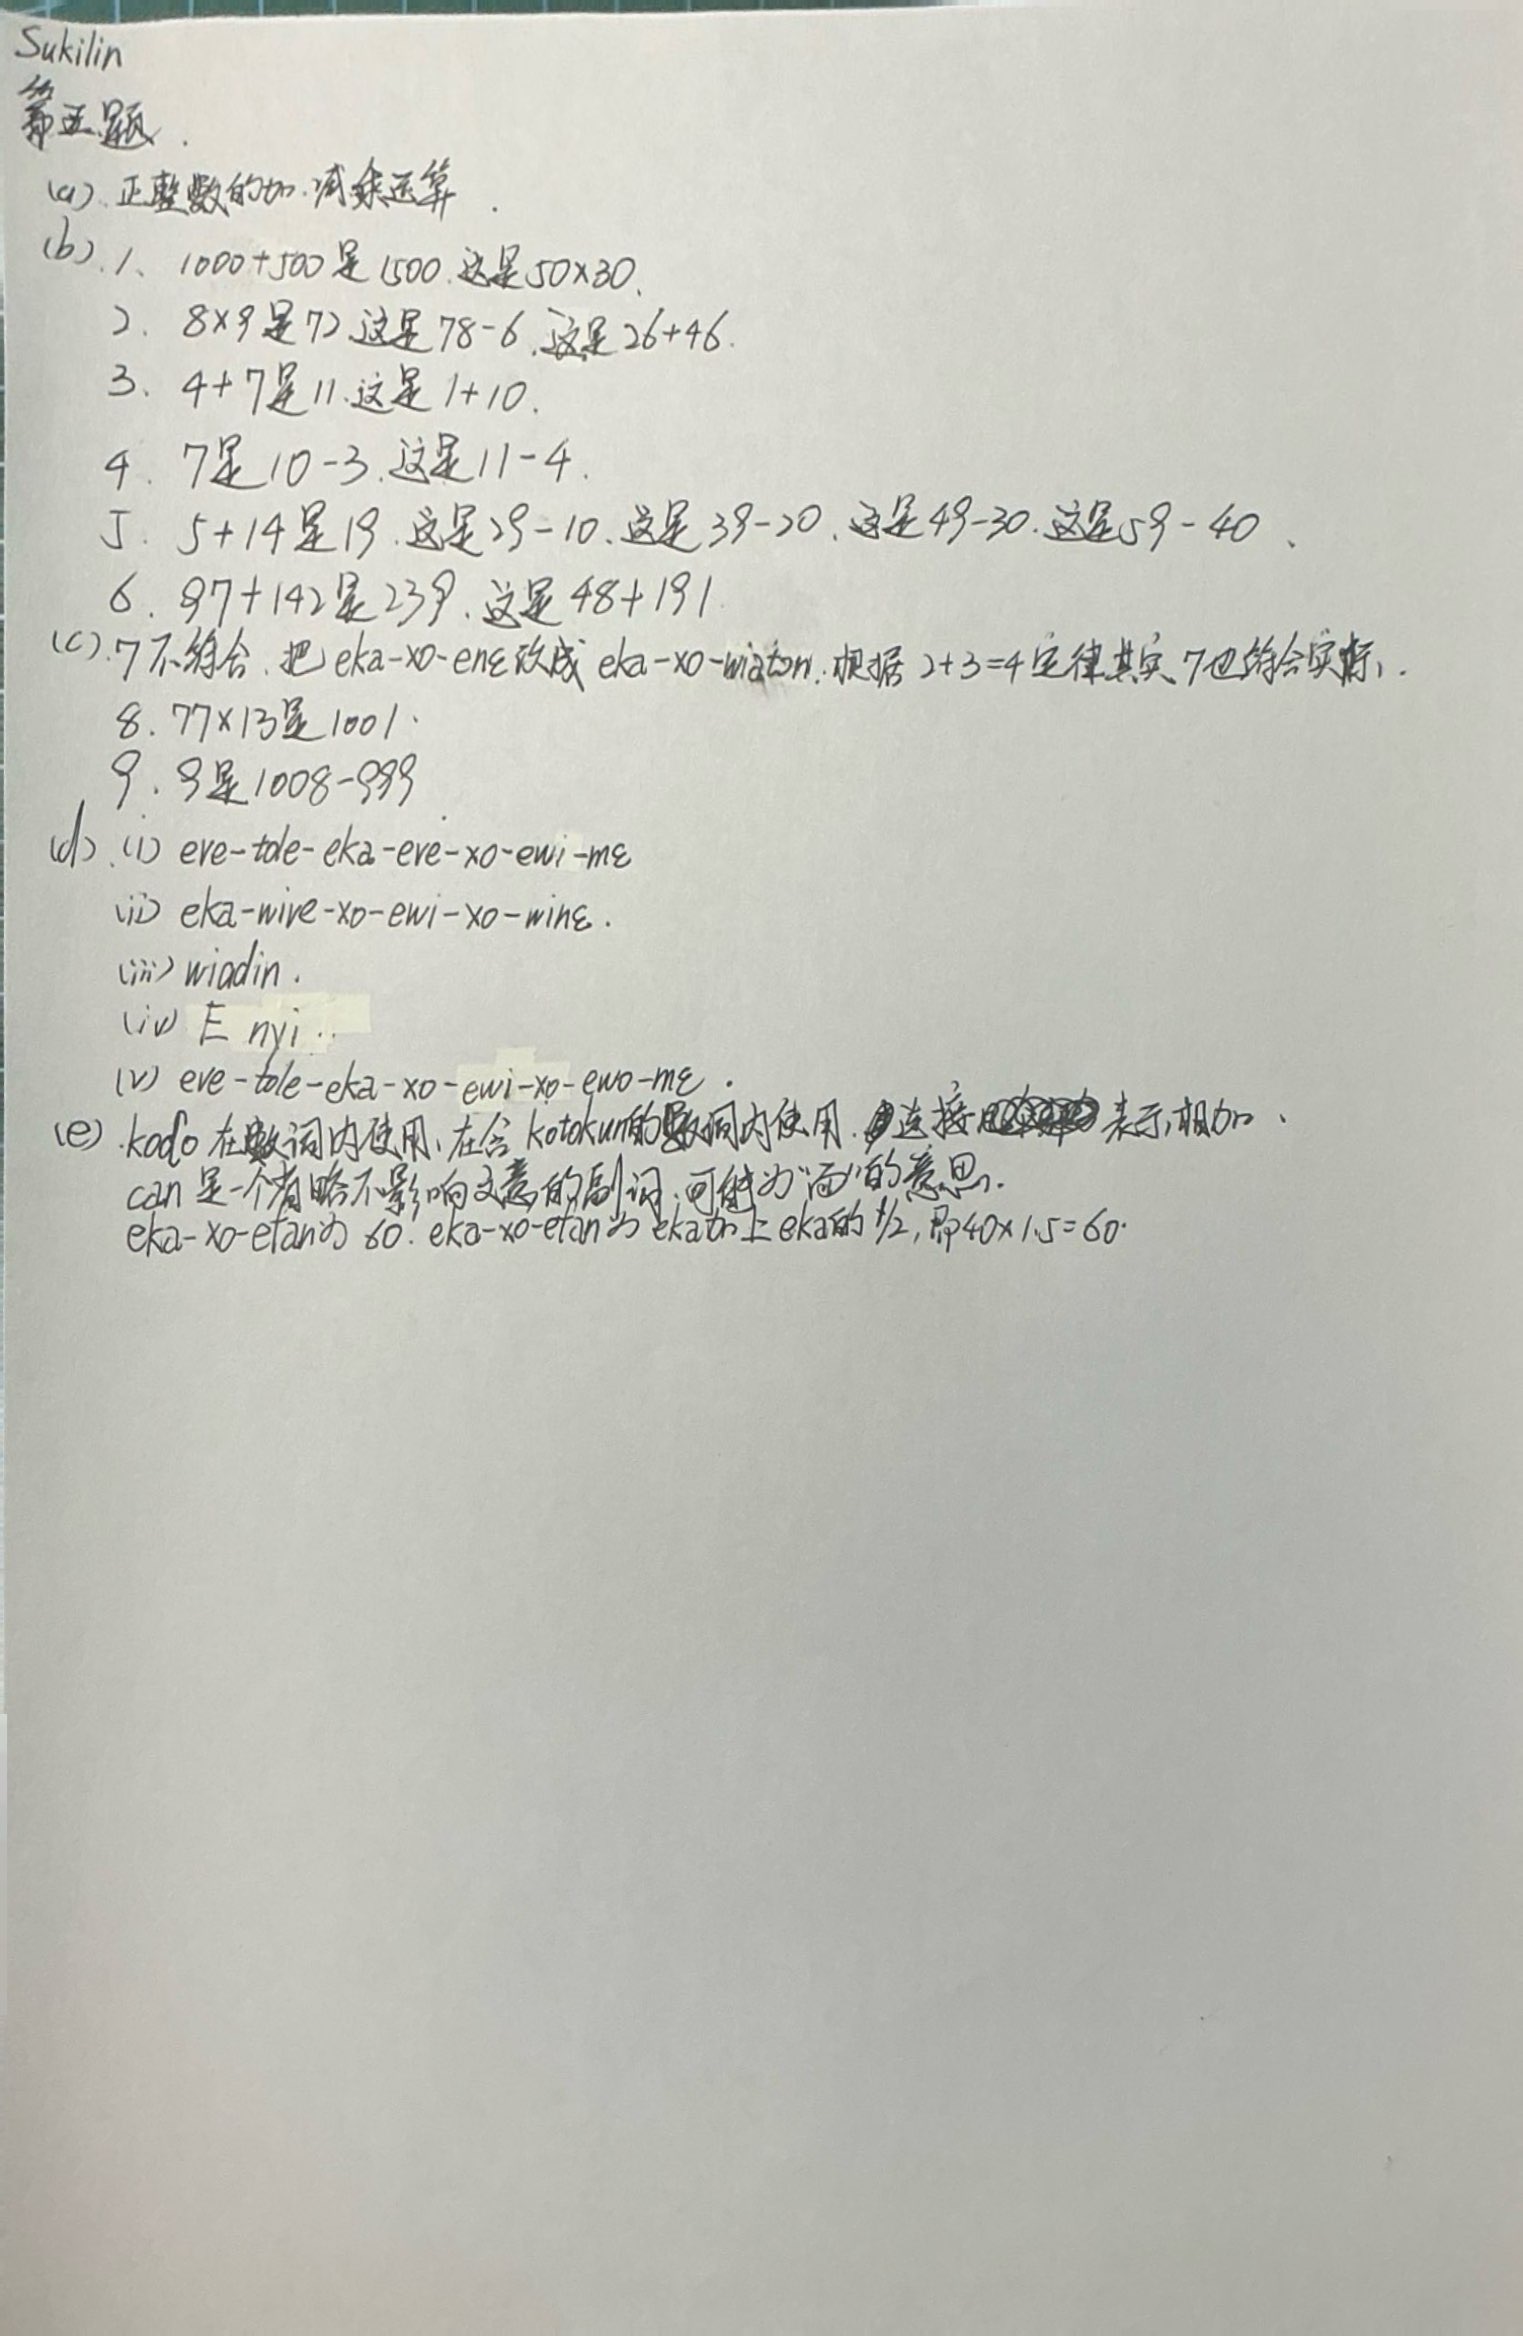 Sukilin
第五题.
(a). 正整数的加.减乘运算.
(b). 1、 1000+500是1500.这是50×30.
2. 8×9是72.这是78-6.这是26+46.
3、 4+7是11.这是1+10.
4. 7是10-3.这是11-4.
5. 5+14是19.这是29-10.这是39-20.这是49-30.这是59-40、
6. 97+142是239.这是48+191
(c).7不符合.把eka-xo-enɛ改成eka-xo-wiatɔn.根据2+3=4定律其实7也符合实际.
8. 77×13是1001.
9. 9是1008-999
(d).(i) eve-tɔle-eka-eve-xo-ewi-mɛ
(ii) eka-wive-xo-ewi-xo-winɛ.
(iii) wiadin.
(iv) E nyi..
(v) eve-tɔle-eka-xo-ewi-xo-ewo-mɛ.
(e).kodo在数词内使用、在含kotokun的数词内使用.连接表示相加、
can是一个省略不影响文意的副词.可能为"而"的意思.
eka-xo-etan为60.eka-xo-etan为eka加上eka的1/2,即40×1.5=60.